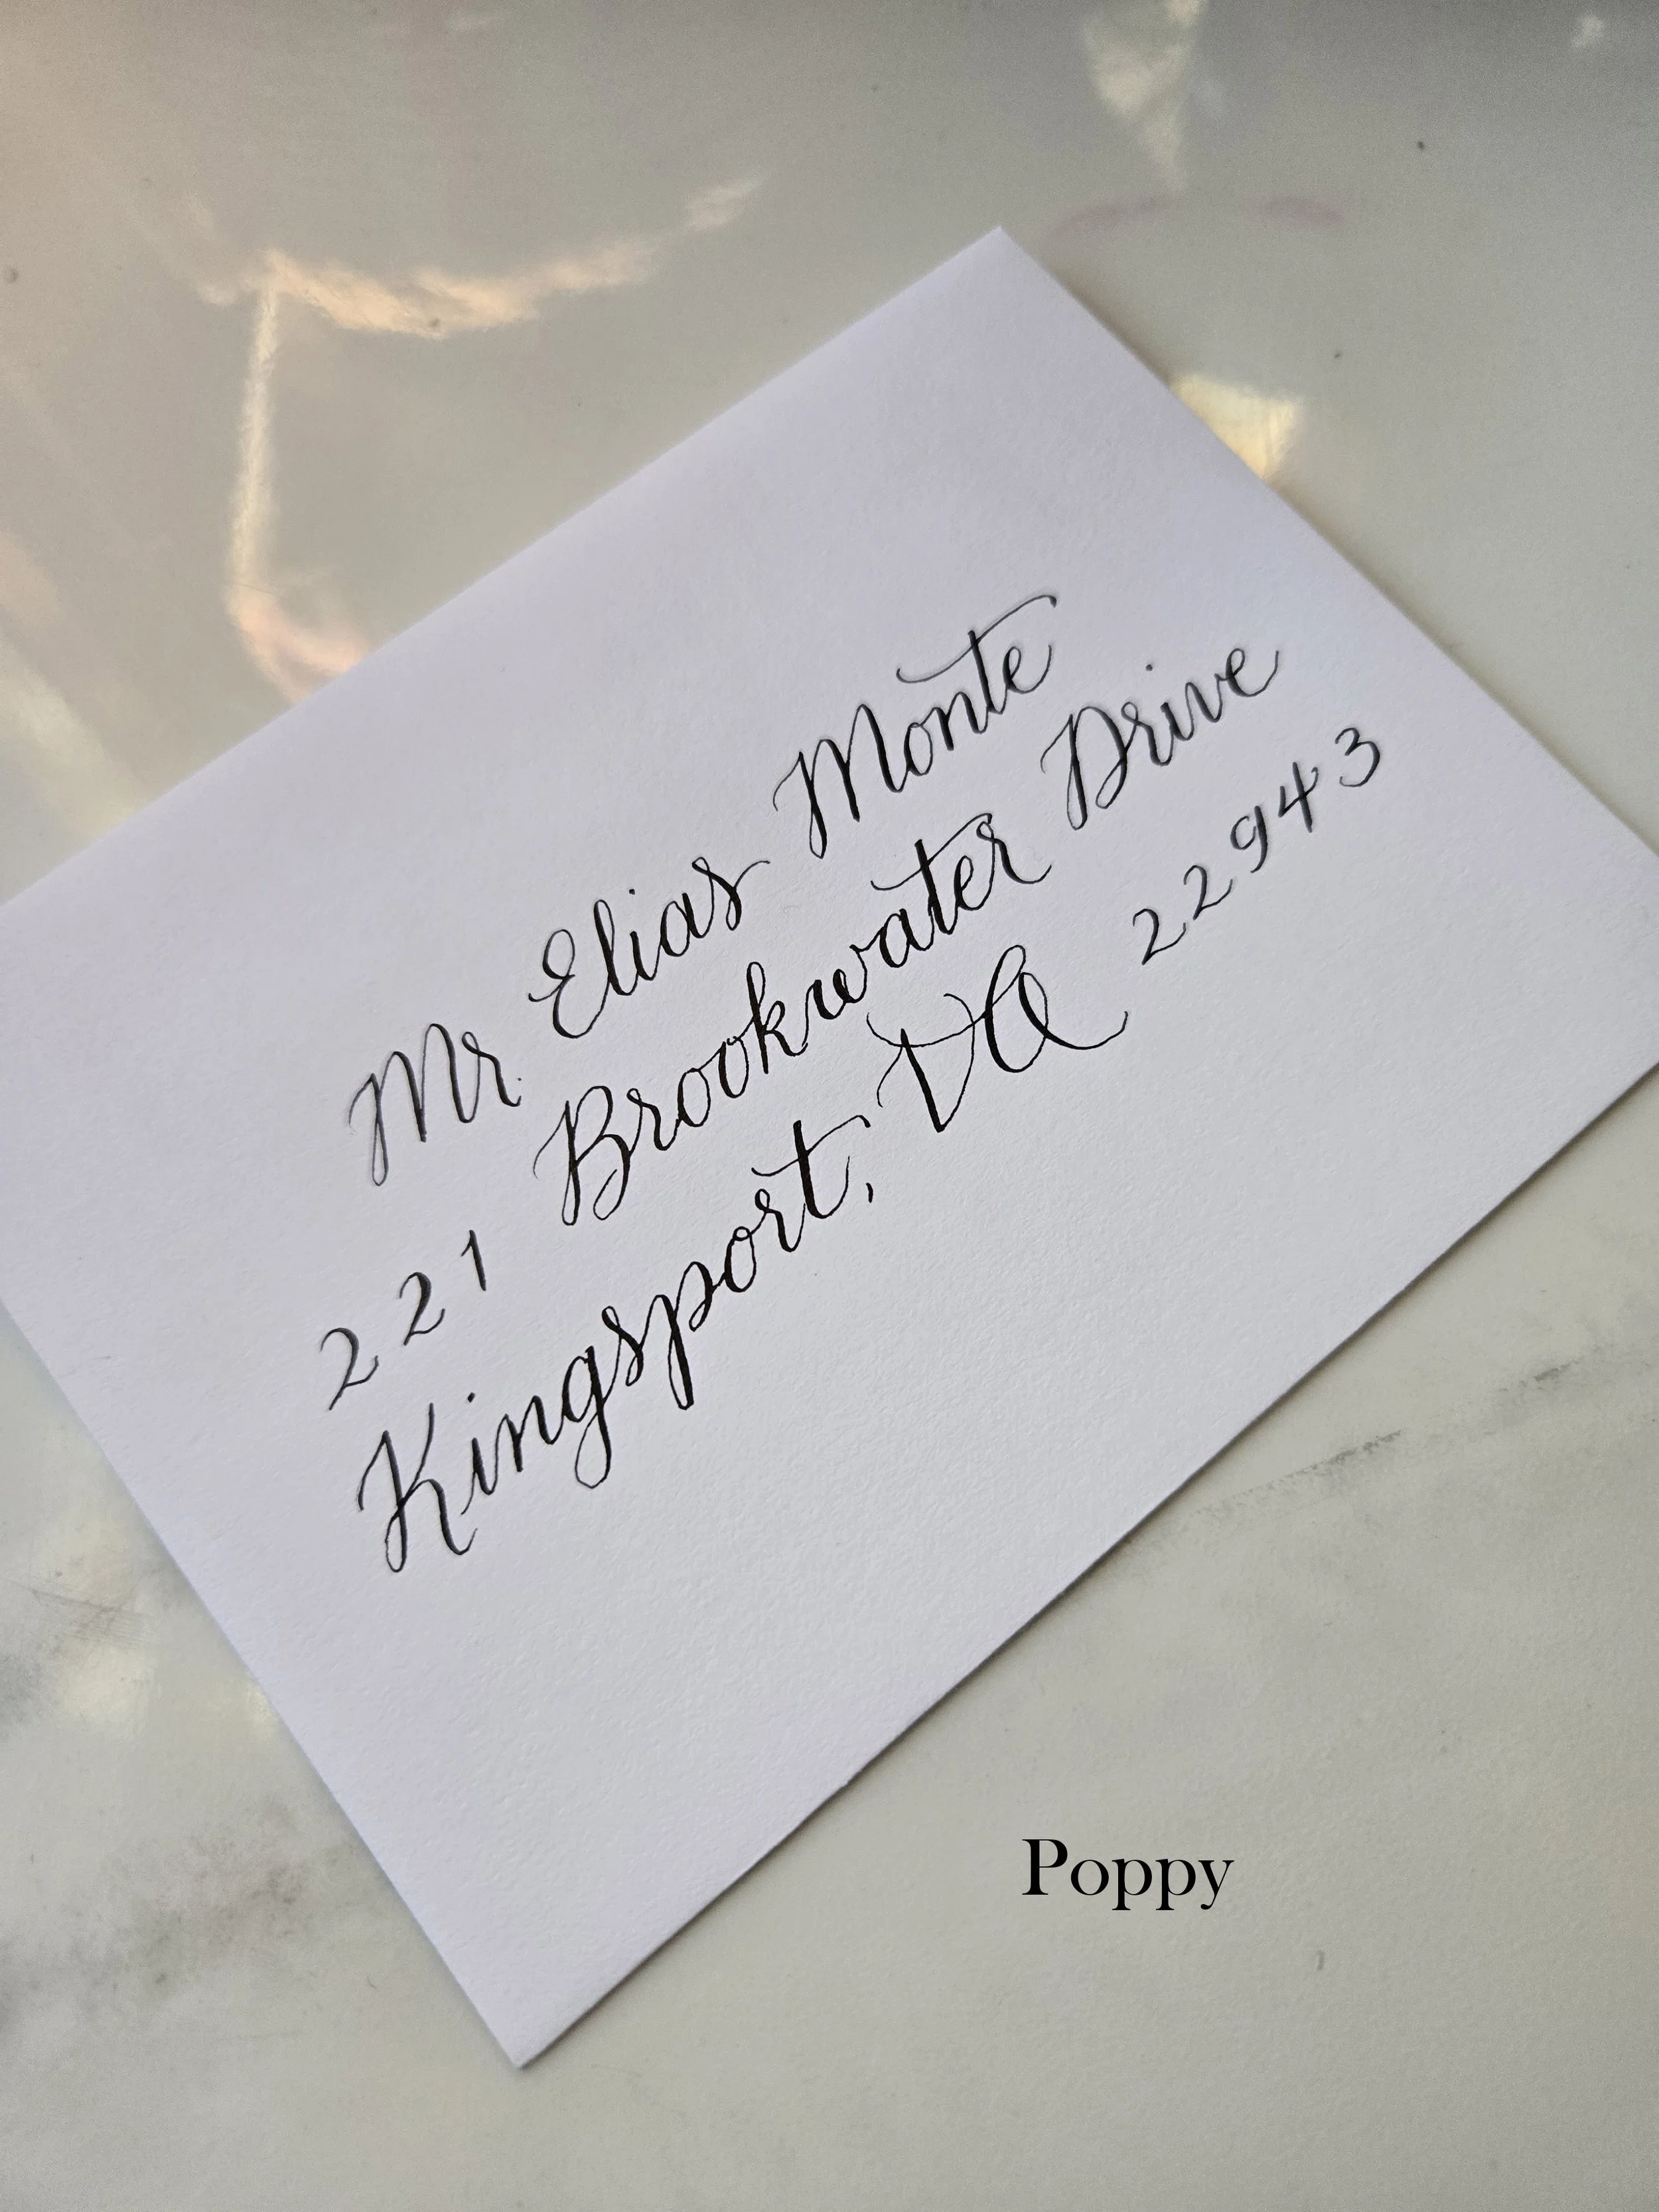 Mr. Elias Monte
221 Brookwater Drive
Kingsport, VA 22943
Poppy